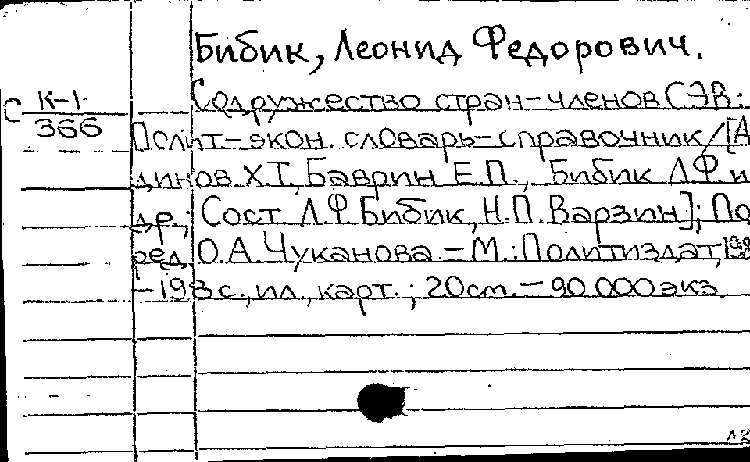 Бибик, Леонид Федорович.
С К-1 Содружество стран-членов СЭВ:
366 Полит-экон. словарь-справочник/[А
динов Х.Т, Баврин Е.П., Бибик Л.Ф и
др.; Сост. Л.Ф.Бибик, Н.П.Варзин]; По
ред. О.А.Чуканова.-М.:Политиздат,198
-198 с., ил., карт.; 20 cm.-90.000 экз.